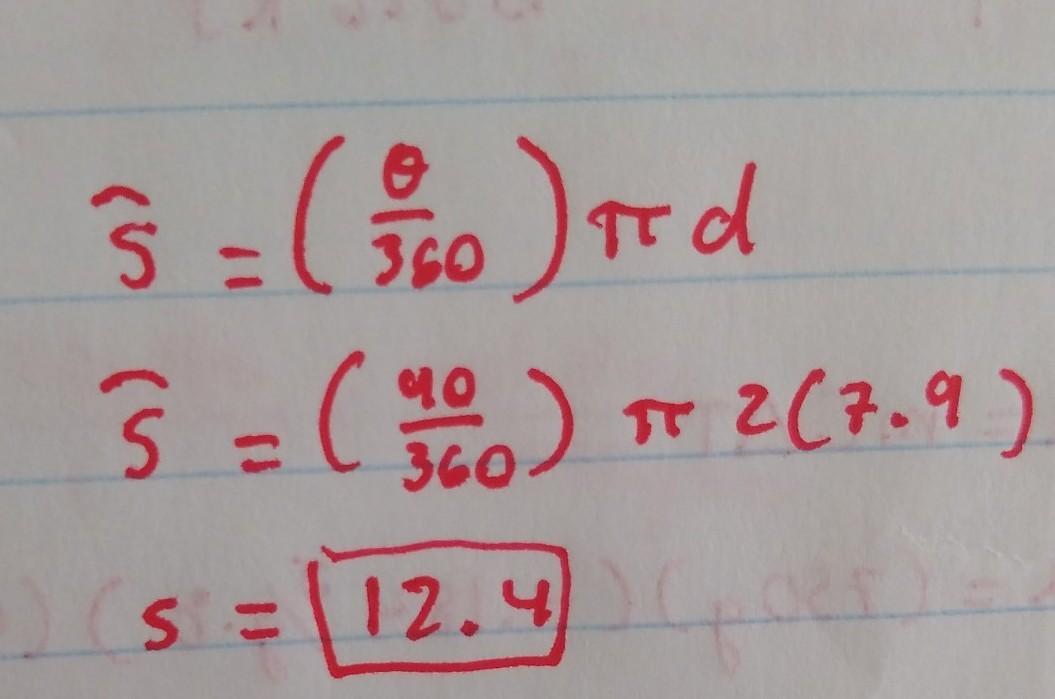 s = (θ/360) π d
s = (90/360) π 2(7.9)
s = 12.4